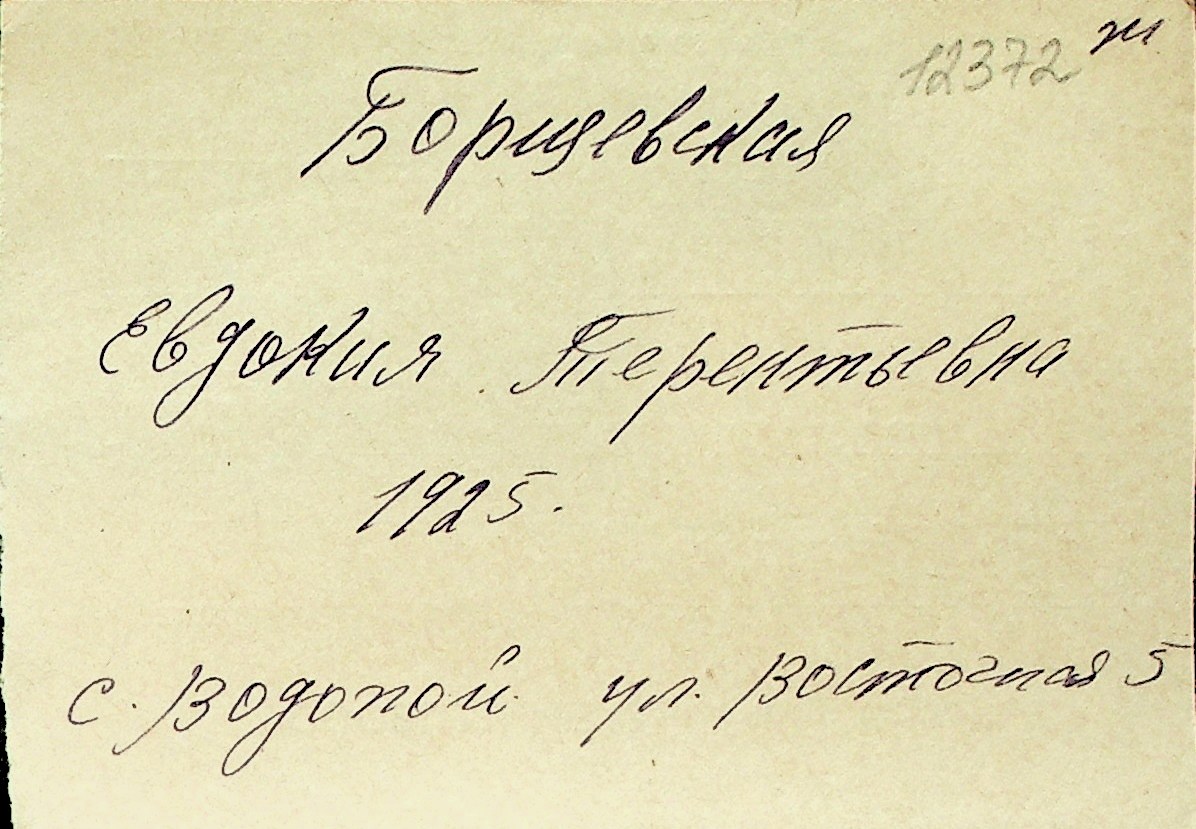 12372 ж
Борщевская
Евдокия Терентьевна
1925.
с. Водопой ул. Восточная 5